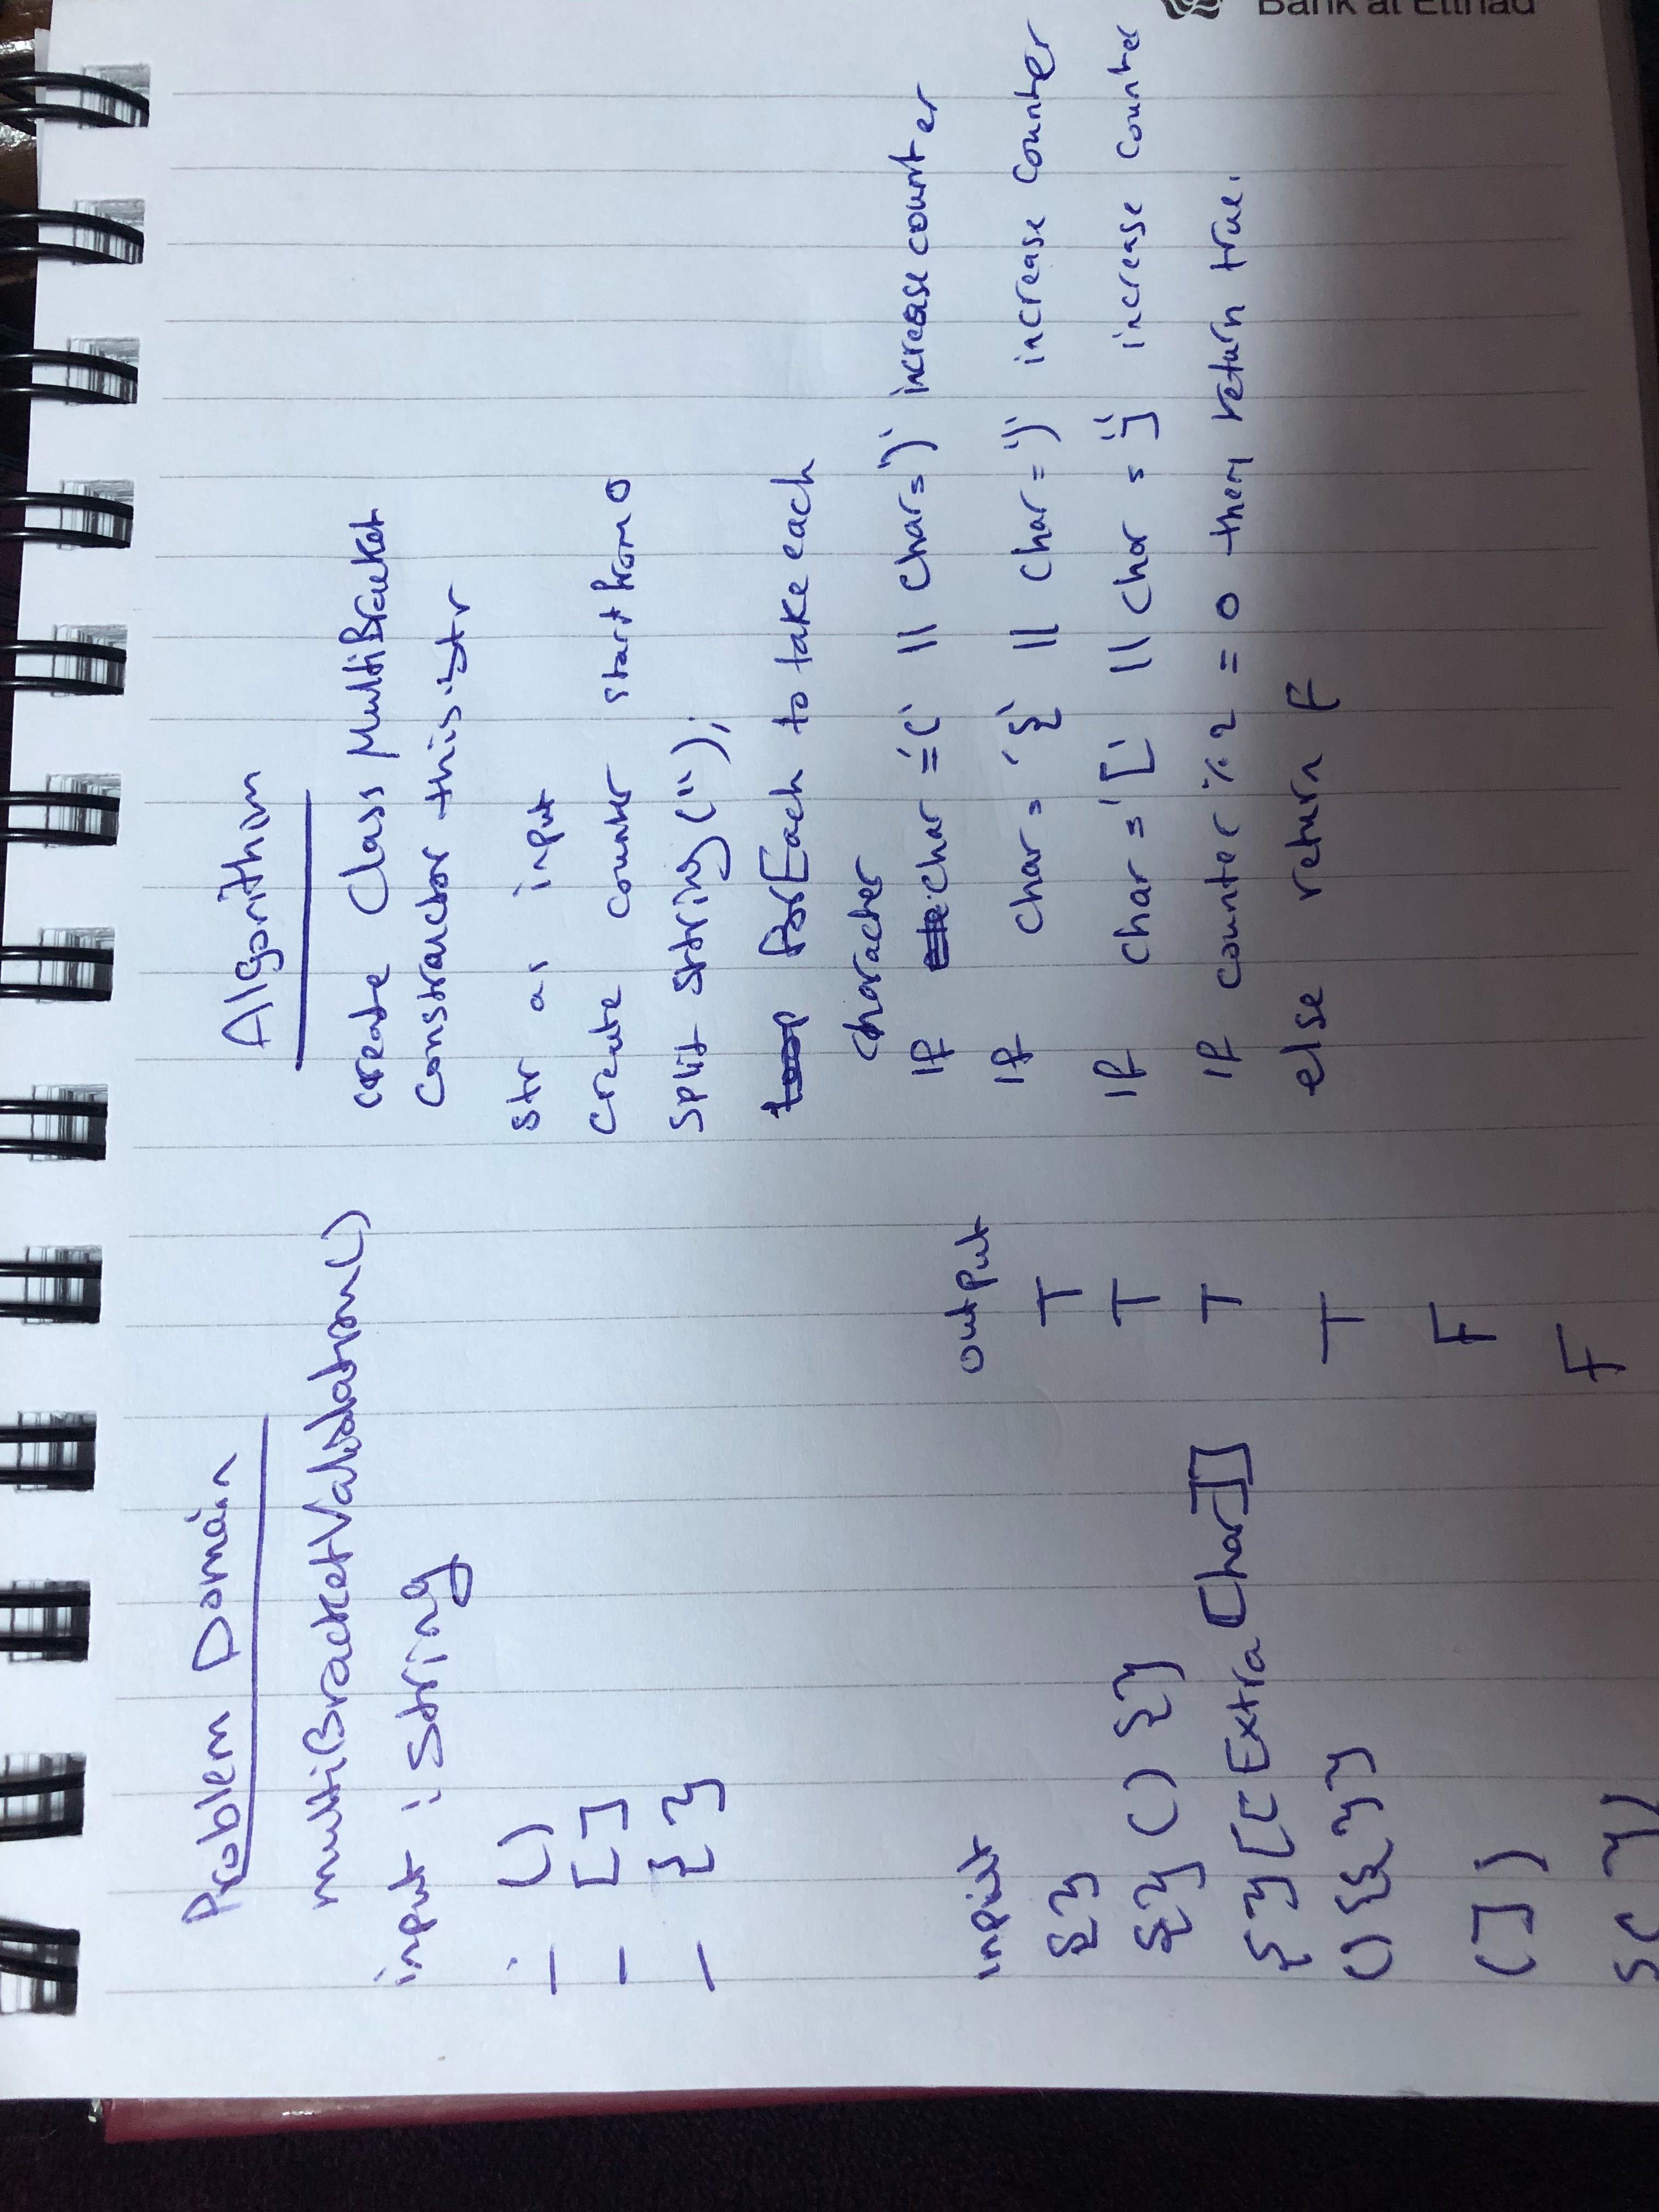 Bank al Etihad
Problem Domain
multiBracketValidation()
input : String
- ()
- []
- {}
input output
{} T
{}(){} T
{}[[Extra[Char]] T
(){{}} T
(]) F
F
Algorithm
create Class MultiBracket
constructor this.str
str as input
Create counter start from 0
split string(");
forEach to take each
character
if char ='(' || char=')' increase counter
if char = '{' || char =')' increase counter
if char ='[' || char ='}' increase counter
if counter % 2 = 0 then return true.
else return F